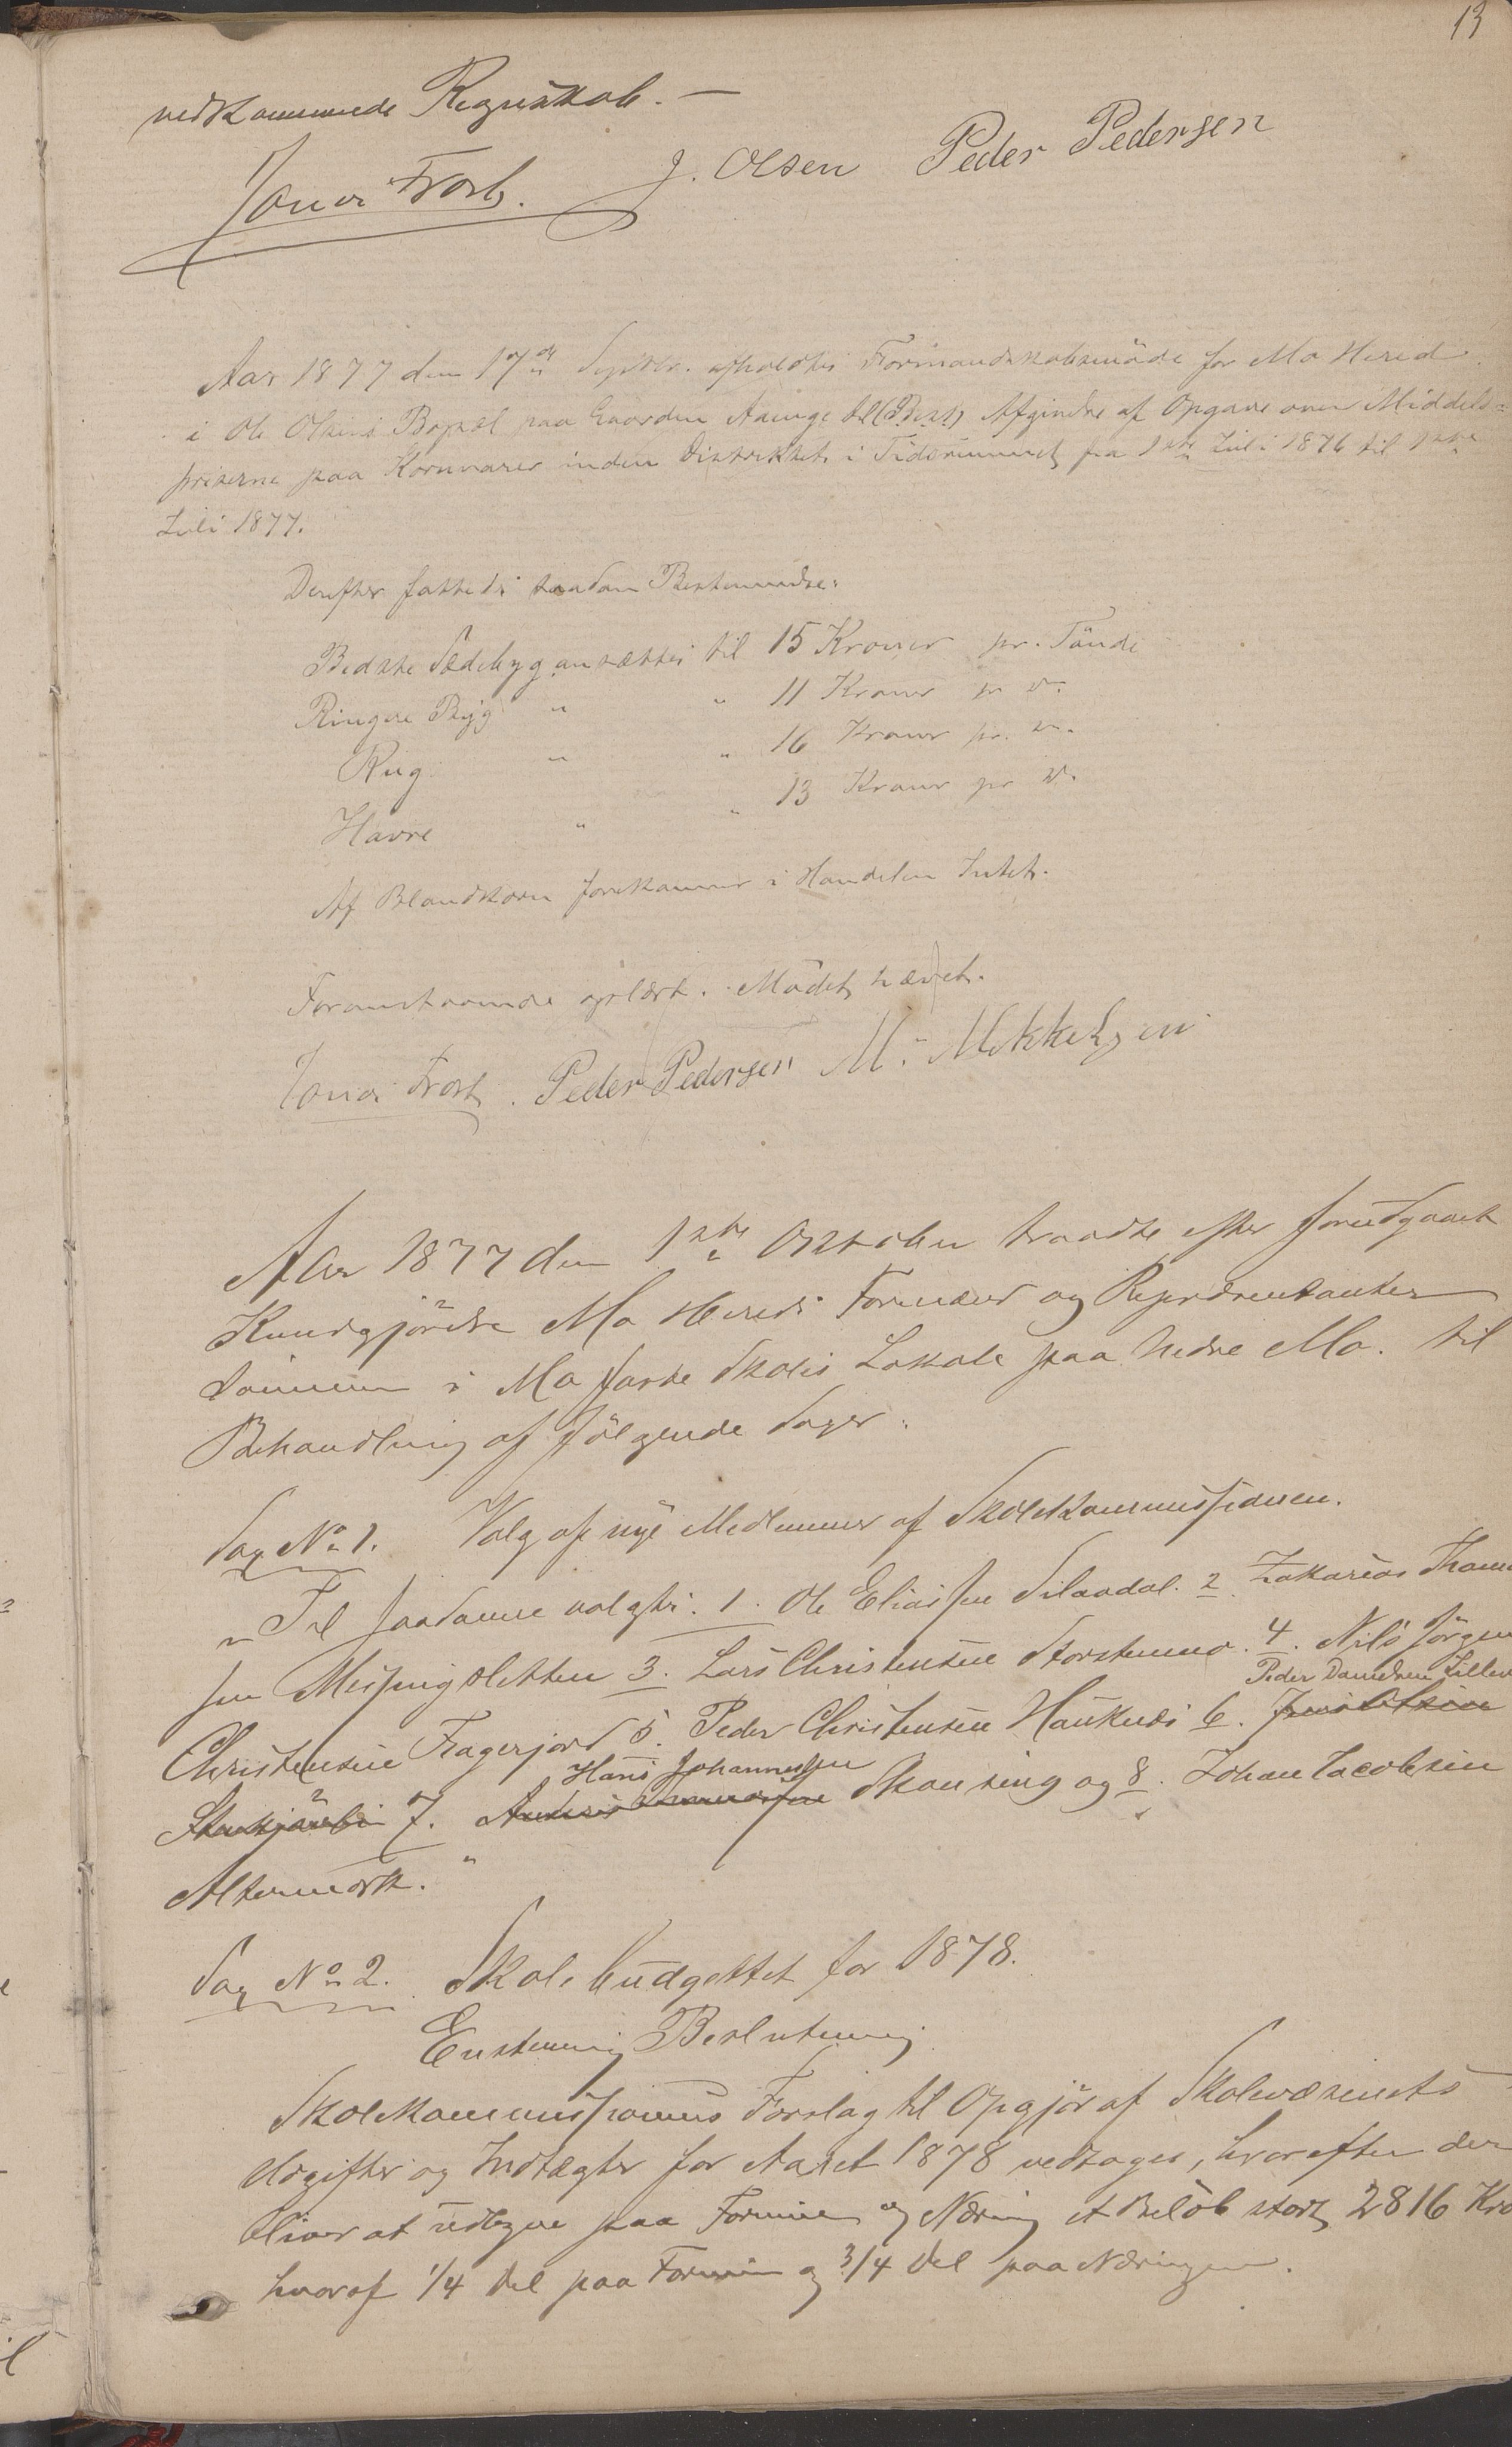 13
vedkommende Regnskab. —
Jonas Frost. J. Olsen Peder Pedersen
Aar 1877 den 17de Septbr. afholdtes Formandskabsmöde for Mo Hered
i Ole Olsens Bopæl paa Gaarden Aange til Afgivelse af Opgave over Middels-
priserne paa Kornvarer inden Distriktet i Tidsrummet fra 1ste Juli 1876 til 1ste
Juli 1877.
Derefter fattedes saadan Bestemmelse:
Bedste Sædebyg ansættes til 15 Kroner pr. Tönde
Ringere Byg " " 11 Kroner pr do.
Rug " " 16 Kroner pr. do.
Havre " " 13 Kroner pr do.
Af Blandkorn forekommer i Handelen Intet.
Foranstaaende oplæst. Mödet hævet.
Jonas Frost. Peder Pedersen M. Mikkelsen
Aar 1877 den 1ste Oktober traadte efter forudgaaet
Kundgjörelse Mo Hereds Formænd og Repræsentanter
sammen i Mo faste Skoles Lokale paa Nedre Mo. til
Behandling af fölgende Sager:
Sag No 1. Valg af nye Medlemmer af Skolekommissionen.
"Til saadanne valgtes. 1. Ole Eliassen Silaadal. 2 Zakarias Thom
sen Messingsletten 3. Lars Christensen Storstenmo. 4. Nils Jörgen
Peder Danielsen Lille
Christensen Fagerjord 5. Peder Christensen Hauknes 6. Jens Olsen
Hans Johannessen
7. Skonseng og 8. Johan Jacobsen
Altermark."
Sag No 2. Skolebudgettet for 1878.
Enstemmig Beslutning
Skolekommissionens Forslag til Opgjör af Skolevæsenets
Udgifter og Indtægter for Aaret 1878 vedtages, hvorefter der
bliver at udligne paa Formue og Næring et Belöb stort 2816 Kro
hvoraf 1/4 Del paa Formue og 3/4 Del paa Næringen.